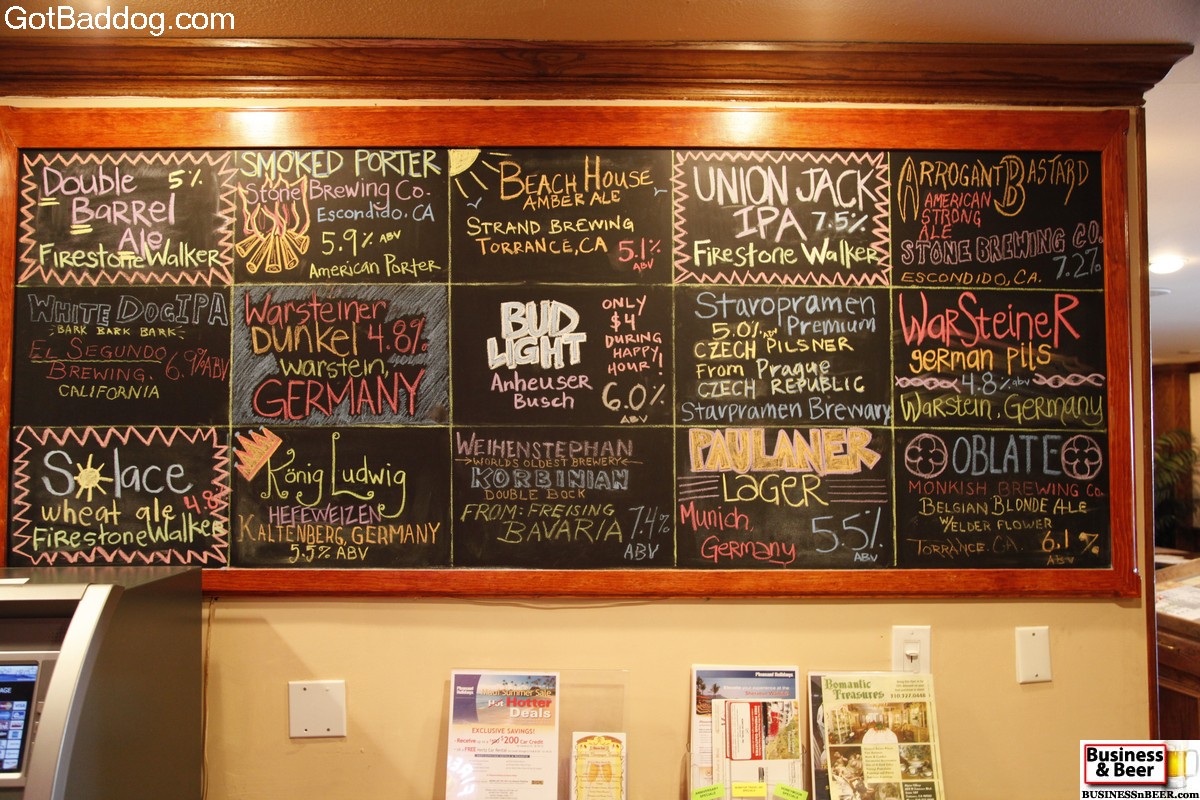 GotBaddog.com
Double 5%
Barrel
Ale
Firestone Walker
SMOKED PORTER
Stone Brewing Co.
Escondido, CA
5.9% ABV
American Porter
BEACH HOUSE
AMBER ALE
STRAND BREWING
TORRANCE, CA 5.1%
ABV
UNION JACK
IPA 7.5%
Firestone Walker
ARROGANT BASTARD
AMERICAN
STRONG
ALE
STONE BREWING CO.
ESCONDIDO, CA. 7.2%
WHITE DOG IPA
BARK BARK BARK
EL SEGUNDO 6.9% ABV
BREWING.
CALIFORNIA
Warsteiner
DUNKel 4.8%
warstein,
GERMANY
BUD
LIGHT
Anheuser
Busch
ONLY
$4
DURING
HAPPY
HOUR!
6.0%
ABV
Staropramen
5.0% ABV Premium
CZECH PILSNER
From Prague
CZECH REPUBLIC
Starpramen Brewary
WarSteineR
german pils
4.8% abv
Warstein, Germany
Solace
wheat ale 4.8%
Firestone Walker
König Ludwig
HEFEWEIZEN
KALTENBERG, GERMANY
5.5% ABV
WEIHENSTEPHAN
WORLDS OLDEST BREWERY
KORBINIAN
DOUBLE BOCK
FROM: FREISING
BAVARIA 7.4%
ABV
PAULANER
LAGER
Munich,
Germany 5.5%
ABV
OBLATE
MONKISH BREWING CO.
BELGIAN BLONDE ALE
W/ELDER FLOWER
TORRANCE. CA. 6.1%
ABV
Pleasant Holidays
Summer Sale
Hot Hotter
Deals
EXCLUSIVE SAVINGS!
$200 Car Credit
Pleasant Holidays
Romantic
Treasures
Business
& Beer
BUSINESSnBEER.com